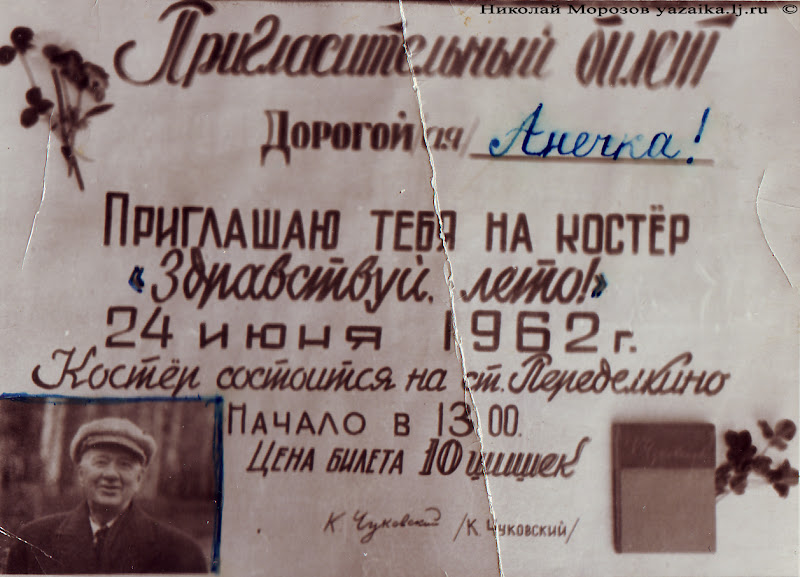 Николай Морозов yazaika.lj.ru ©
Пригласительный билет
Дорогой/ая/ Анечка!
Приглашаю тебя на костёр
«Здравствуй, лето!»
24 июня 1962 г.
Костёр состоится на ст. Переделкино
Начало в 13 00.
Цена билета 10 шишек
К. Чуковский /К. Чуковский/